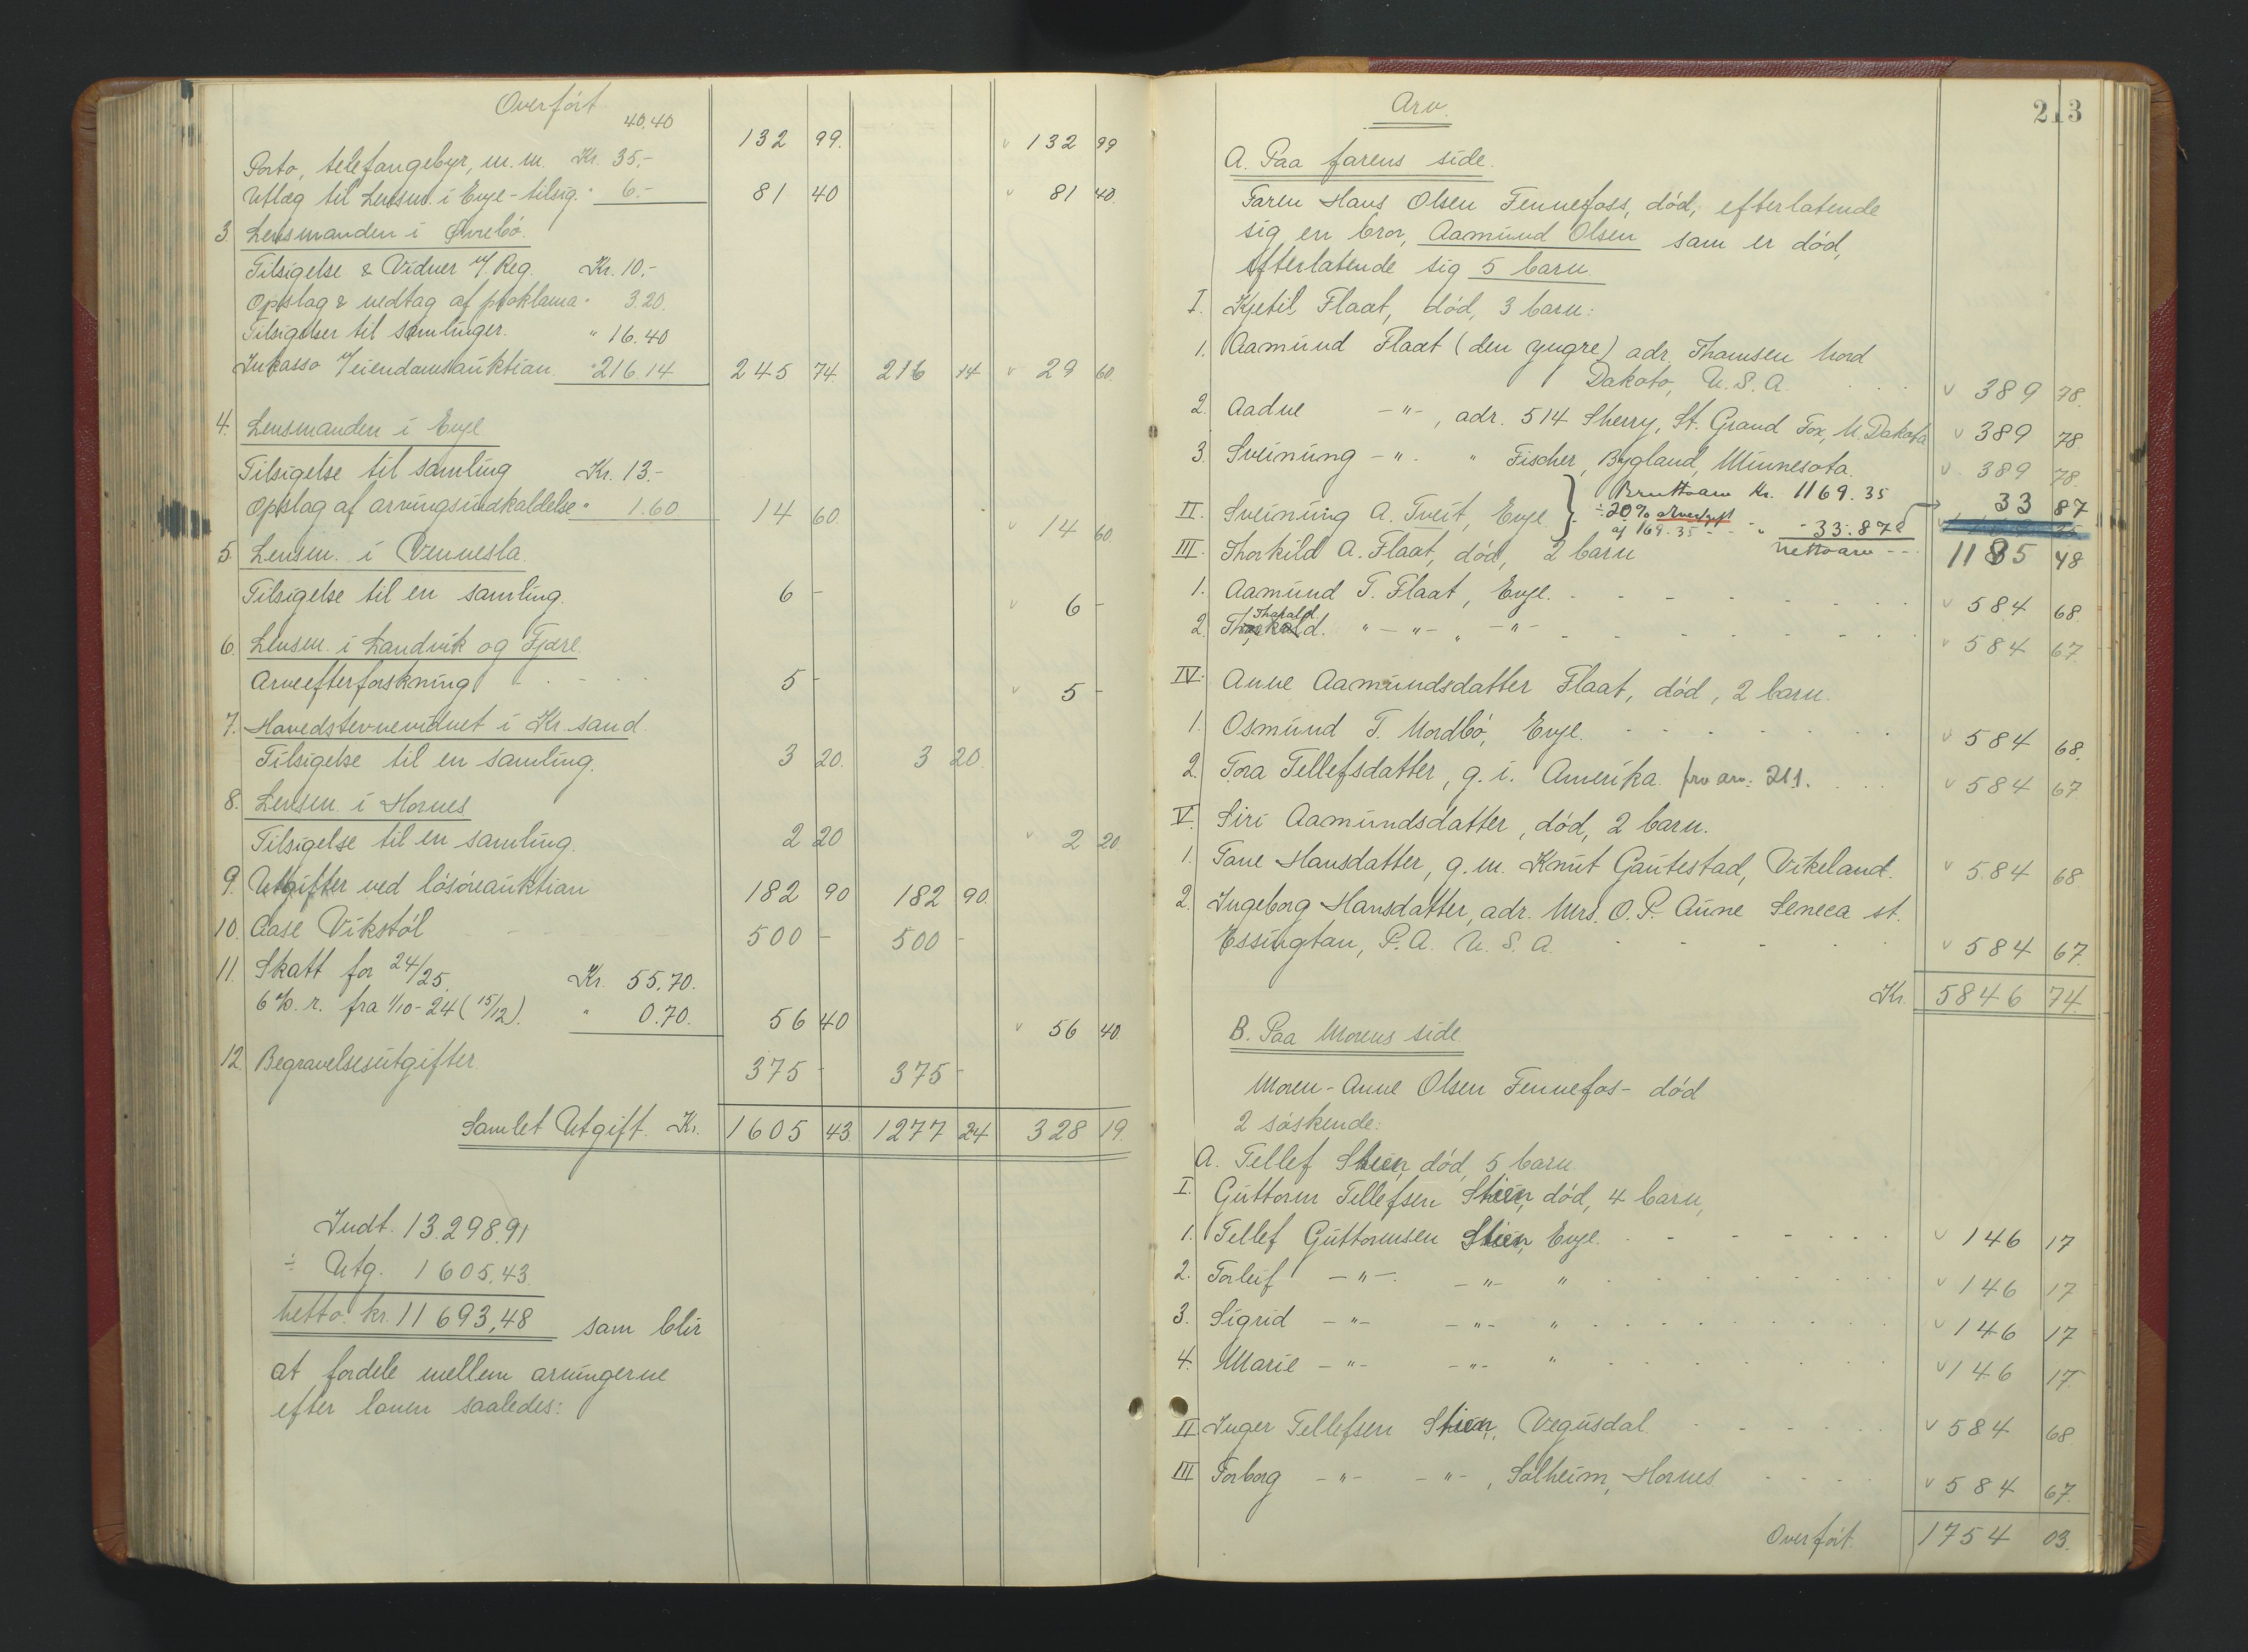 Overført
40.40
132 99. v 132 99
Porto, telefongebyr, m.m. Kr. 35.-
Utlæg til Lensm. i Evje-tilsig. " 6.- 81 40 v 81 40.
3. Lensmanden i Øvrebø.
Tilsigelse & Vidner v/ Reg. Kr. 10.-
Opslag & nedtag af proklama " 3.20.
Tilsigelser til samlinger. " 16.40
Inkasso v/ eiendomsauktion " 216.14 245 74. 216 14 v 29 60.
4. Lensmanden i Evje
Tilsigelse til samling Kr. 13.-
Opslag af arvingsindkaldelse " 1.60 14 60. v 14 60.
5. Lensm. i Vennesla.
Tilsigelse til en samling. 6 - v 6 -
6. Lensm. i Landvik og Fjære.
Arveefterforskning 5 - v 5 -
7. Hovedstevnevidnet i Kr.sand.
Tilsigelse til en samling. 3 20. 3 20.
8. Lensm. i Hornes
Tilsigelse til en samling. 2 20 v 2 20.
9. Utgifter ved løsøreauktion 182 90 182 90.
10. Aase Vikstøl 500 - 500 -
11. Skatt for 24/25. Kr. 55.70.
6% r. fra 1/10-24 (15/12). " 0.70. 56 40 v 56 40.
12. Begravelsesutgifter. 375 - 375 -
Samlet Utgift. Kr. 1605 43. 1277 24 328 19.
Indt. 13.298.91
÷ Utg. 1605.43.
Netto kr. 11 693,48 som blir
at fordele mellem arvingerne
efter loven saaledes:
213
Arv.
A. Paa farens side.
Faren Hans Olsen Fennefoss, død, efterlatende
sig en bror, Aamund Olsen som er død,
efterlatende sig 5 barn.
I. Kjetil Flaat, død, 3 barn:
1. Aamund Flaat (den yngre) adr. Thomsen Nord
Dakota, U.S.A. v 389 78.
2. Aadne -"-, adr. 514 Cherry, St. Grand Fox, N. Dakota v 389 78.
3. Sveinung -"- " Fischer, Bygland, Minnesota. v 389 78.
Bruttoarv Kr. 1169.35
II. Sveinung A. Tveit, Evje. } ÷ 20% arveavgift 33 87
af 169.35 - - " - 33.87
III. Thorkild A. Flaat, død, 2 barn Nettoarv - - 1135 48
1. Aamund T. Flaat, Evje. v 584 68.
2. Thorvald. " -"- " -"- v 584 67.
IV. Anne Aamundsdatter Flaat, død, 2 barn.
1. Osmund T. Nordbø, Evje. v 584 68.
2. Tora Tellefsdatter, g. i. Amerika. 211. v 584 67
V. Siri Aamundsdatter, død, 2 barn.
1. Tone Hansdatter, g.m. Knut Gautestad, Vikeland. v 584 68
2. Ingeborg Hansdatter, adr. Mrs. O.P. Aune Seneca st.
Essington, P.A. U.S.A. v 584 67.
Kr. 5846 74.
B. Paa Morens side.
Moren - Anne Olsen Fennefos - død
2 søskende:
A. Tellef Stien, død, 5 barn
I. Guttorm Tellefsen Stien, død, 4 barn,
1. Tellef Guttormsen Stien, Evje. v 146 17
2. Torleif -"- -"- " v 146 17
3. Sigrid -"- -"- " v 146 17
4. Marie -"- -"- " v 146 17.
II Inger Tellefsen Stien, Vegusdal. v 584 68.
III Torborg -"- -"-, Solheim, Hornes. v 584 67.
Overført. 1754 03.